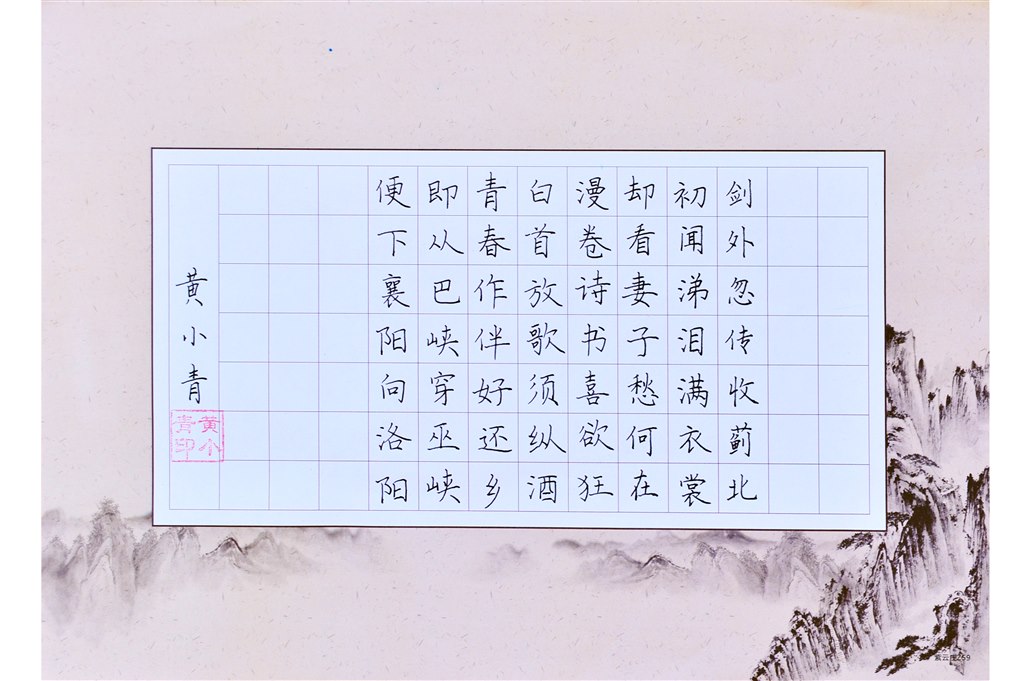 剑外忽传收蓟北
初闻涕泪满衣裳
却看妻子愁何在
漫卷诗书喜欲狂
白首放歌须纵酒
青春作伴好还乡
即从巴峡穿巫峡
便下襄阳向洛阳
黄小青
黄小青印